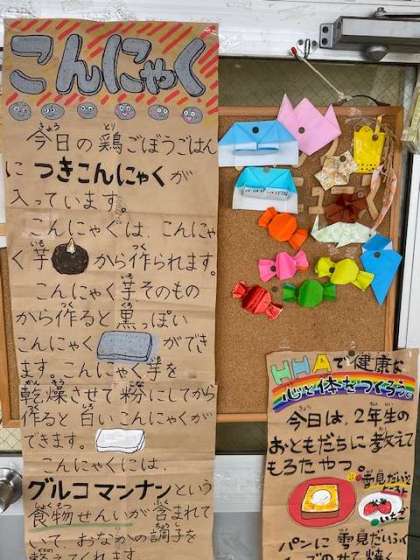 こんにゃく
今日の鶏ごぼうごはん
につきこんにゃくが
入っています。
こんにゃくは、こんにゃ
く芋から作られます。
こんにゃく芋そのもの
から作ると黒っぽい
こんにゃくができ
ます。こんにゃく芋を
乾燥させて粉にしてから
作ると白いこんにゃくが
できます。
こんにゃくには、
グルコマンナンという
食物せんいが含まれて
いて、おなかの調子を
整えてくれます
HHAで健康な
心と体をつくろう。
今日は、2年生の
おともだちに教えて
もろたやつ。
雪見だいふく
トースト
いちご
パンに雪見だいふく
のせて焼く